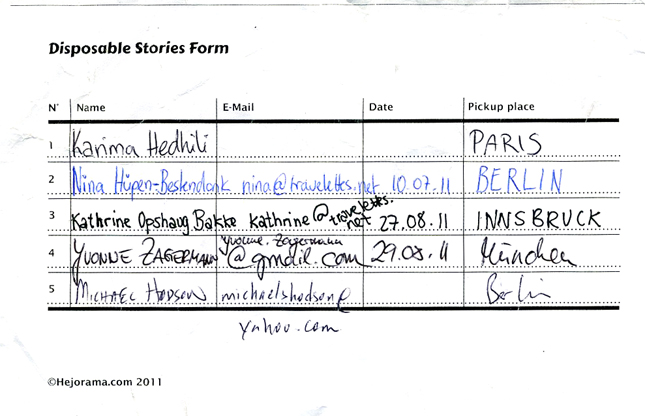 Disposable Stories Form
N° Name E-Mail Date Pickup place
1 Karima Hedhili PARIS
2 Nina Hüpen-Bestendonk nina@travelettes.net 10.07.11 BERLIN
3 Kathrine Opshaug Bakke kathrine@travelettes.net 27.08.11 INNSBRUCK
4 YVONNE ZAGERMANN yvonne.zagermann@gmail.com 29.08.11 München
5 MICHAEL HODSON michaelshodson@ Berlin
yahoo.com
©Hejorama.com 2011